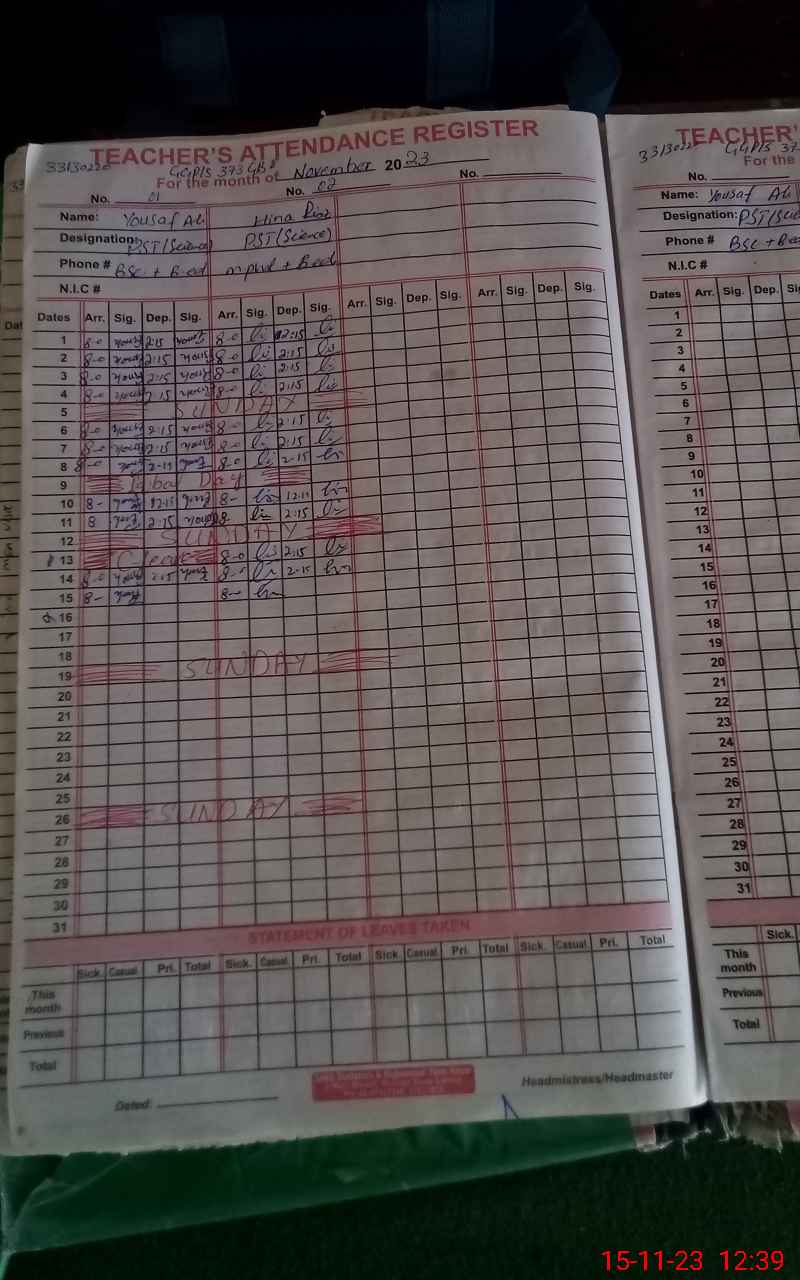 TEACHER'S ATTENDANCE REGISTER
33130220 GGPIS 373 GB
For the month of November 2023
No. 01 No. 02 No.
Name: Yousaf Ali Hina Riaz
Designation: PST(Science) PST(Science)
Phone # BSc. + B.ed mphil + B.ed
N.I.C #
Dates Arr. Sig. Dep. Sig. Arr. Sig. Dep. Sig. Arr. Sig. Dep. Sig. Arr. Sig. Dep. Sig.
1 8-0 2:15 8-0 12:15
2 8-0 2:15 8-0 2:15
3 8-0 2:15 8-0 2:15
4 8-0 2:15 8-0 2:15
5 SUNDAY
6 8-0 2:15 8-0 2:15
7 8-0 2:15 8-0 2:15
8 8-0 2-15 8-0 2-15
9 Iqbal Day
10 8- 12-15 8-
11 8 2:15 8- 2:15
12 SUNDAY
13 8-0 2:15
14 8-0 2:15 8-0 2-15
15 8- 8-
16
17
18
19 SUNDAY
20
21
22
23
24
25
26 SUNDAY
27
28
29
30
31
STATEMENT OF LEAVES TAKEN
Sick. Casual. Pri. Total Sick. Casual. Pri. Total Sick. Casual. Pri. Total Sick. Casual. Pri. Total
This month
Previous
Total
Dated: Headmistress/Headmaster
TEACHER'S
33130220 GGPIS 37
For the
No.
Name: Yousaf Ali
Designation: PST(Scie
Phone # BSc + B.e
N.I.C #
Dates Arr. Sig. Dep. Si
1
2
3
4
5
6
7
8
9
10
11
12
13
14
15
16
17
18
19
20
21
22
23
24
25
26
27
28
29
30
31
Sick.
This month
Previous
Total
15-11-23 12:39